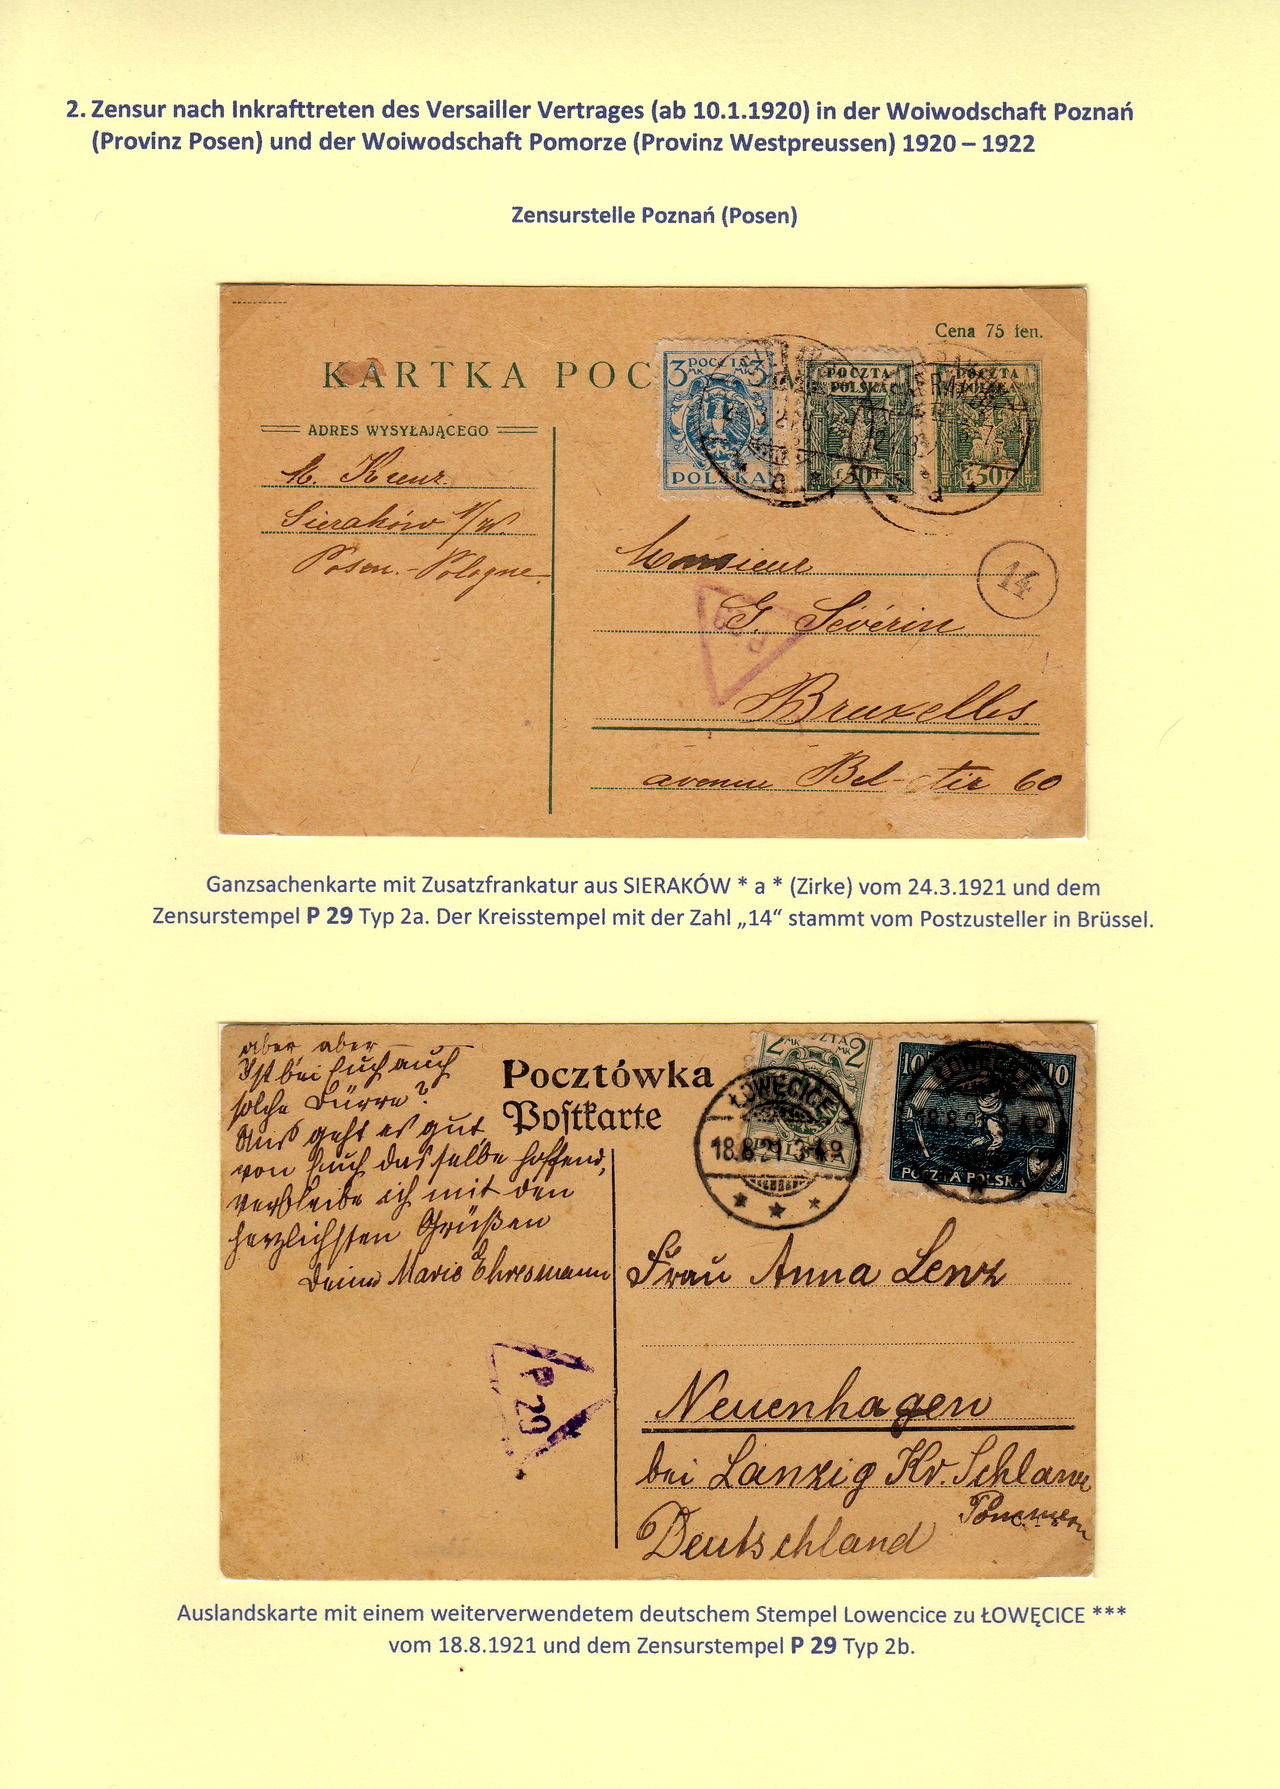 2. Zensur nach Inkrafttreten des Versailler Vertrages (ab 10.1.1920) in der Woiwodschaft Poznań
(Provinz Posen) und der Woiwodschaft Pomorze (Provinz Westpreussen) 1920 – 1922
Zensurstelle Poznań (Posen)
Cena 75 fen.
KARTKA POC
3 POCZTA 3
MK MK
POLSKA
POCZTA
POLSKA
50
POCZTA
POLSKA
50
ADRES WYSYŁAJĄCEGO
Sieraków n/W.
Posen.-Pologne.
Monsieur
14
G. Sévérin
P 29
Bruxelles
avenue Bel-Air 60
Ganzsachenkarte mit Zusatzfrankatur aus SIERAKÓW * a * (Zirke) vom 24.3.1921 und dem
Zensurstempel P 29 Typ 2a. Der Kreisstempel mit der Zahl „14“ stammt vom Postzusteller in Brüssel.
aber aber
Ist bei Euch auch
solche Dürre?
Uns geht es gut
von Euch dasselbe hoffend,
verbleibe ich mit den
herzlichsten Grüßen
Deine Marie Ehresmann
Pocztówka
Postkarte
2 MK MK 2
10 10
POCZTA POLSKA
ŁOWĘCICE
18.8.21 3-4 N
* * *
ŁOWĘCICE
18.8.21 3-4 N
Frau Anna Lenz
P 29
Neuenhagen
bei Lanzig Kr. Schlawe
Pommern
Deutschland
Auslandskarte mit einem weiterverwendetem deutschem Stempel Lowencice zu ŁOWĘCICE ***
vom 18.8.1921 und dem Zensurstempel P 29 Typ 2b.